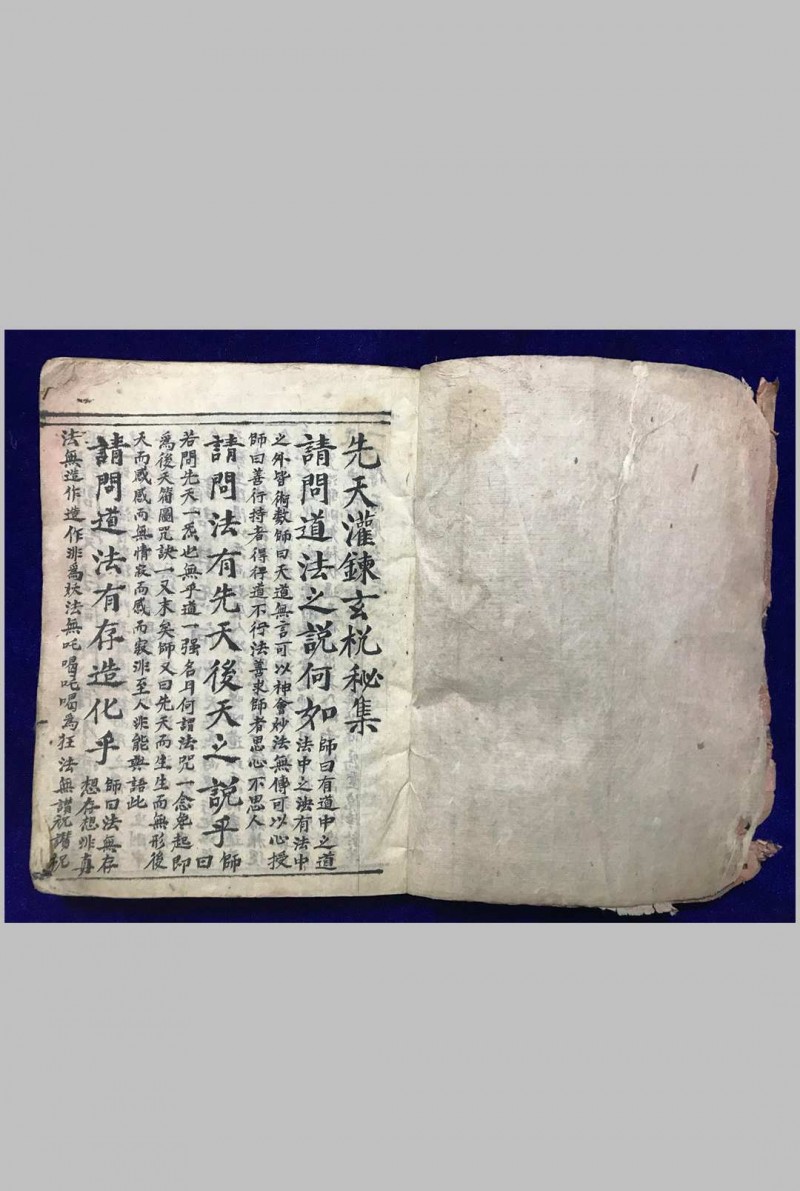 先天灌鍊玄杋秘集
請問道法之説何如師曰有道中之道
法中之法有法中
之外皆術数師曰天道無言可以神會妙法無傳可以心授
師曰善行持者得得道不行法善求師者思心不思人
請問法有先天後天之説乎師
曰
若問先天一炁也無乎道一强名月何謂法咒一念皋起即
為後天符圖咒訣一又末矣師又曰先天而生生而無形後
天而感感而無情寂而感而寂非至人非能與語此
請問道法有存造化乎師曰法無存
想存想非真
法無造作造作非為妖法無吒喝吒喝為狂法無譜祝譜祝